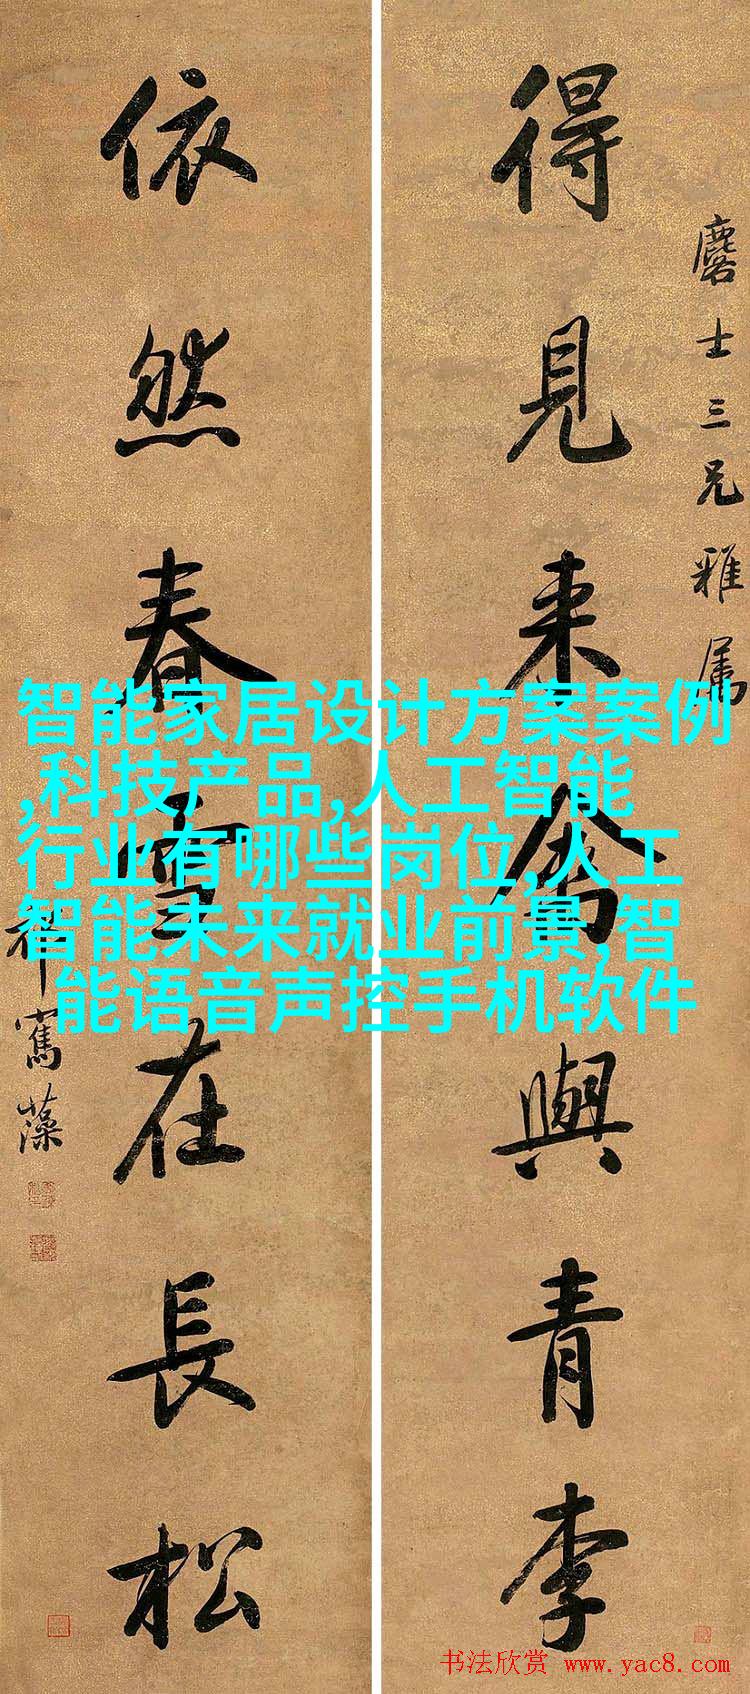 得見来禽與青李
麐士三兄雅属
依然春雪在長松
祁寯藻
智能家居设计方案案例
,科技产品,人工智能
行业有哪些岗位,人工
智能未来就业前景,智
能语音声控手机软件
书法欣赏 www.yac8.com